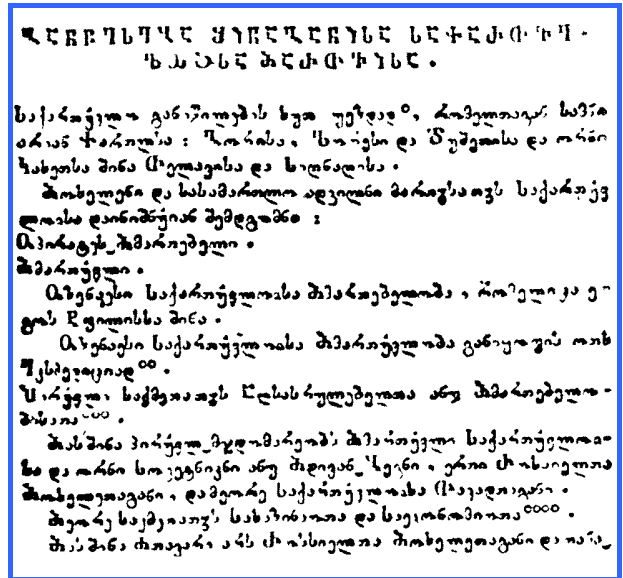 საქართველო განიყოფების ხუთ უეზდად°, რომელთაგან სამნი
არიან ქართლსა : გორისა, ლორესი და დუშეთისა და ორნი
კახეთსა შინა თელავისა და სიღნაღისა .
მოხელენი და სასამართლო ადგილნი საქართვე
ლოსა დაინიშნჳიან შემდგომნი :
მმართებელი .
მმართველი .
უზენაესი საქართველოსა მმართებელობა , რომელიცა ე-
გოს ტფილისსა შინა .
უზენაესი საქართველოსა მმართველობა განიყოფვის ოთხ
ექსპედიციად°° .
პირველი საქმეთათჳს აღსასრულებელთა ანუ მმართებელო-
ბისათა°°° .
მას შინა პირველ_მჯდომარეობს მმართველი საქართველოა-
სა და ორნი სოვეტნიკნი ანუ მდივან_ბეგნი , ერთი რუსიელთა
მოხელეთაგანი , და მეორე საქართველოსა თავადთაგანი .
მეორე საქმეთათჳს სახაზინოთა და საეკონომიოთა°°°° .
მას შინა მთავარი არს რუსიელთა მოხელეთაგანი და